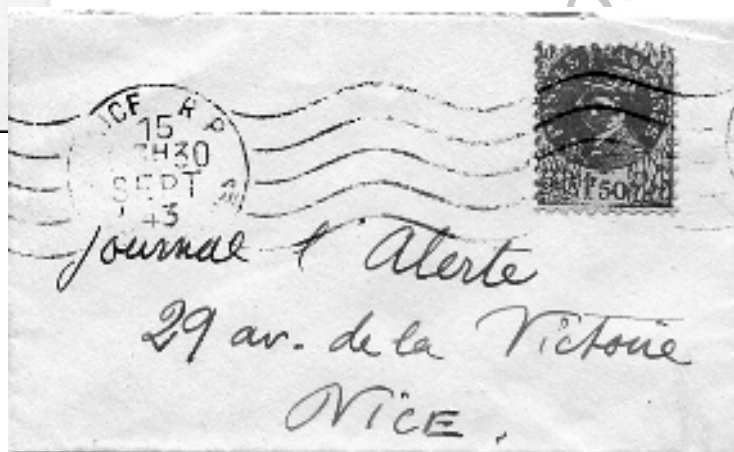 15
H30
SEPT
43
1F50
journal l'Alerte
29 av. de la Victoire
NICE.